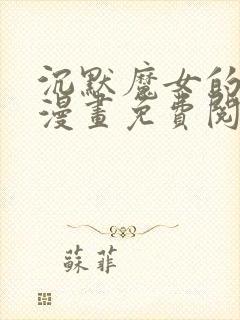 沉默魔女的
漫畫免費閱
蘇菲